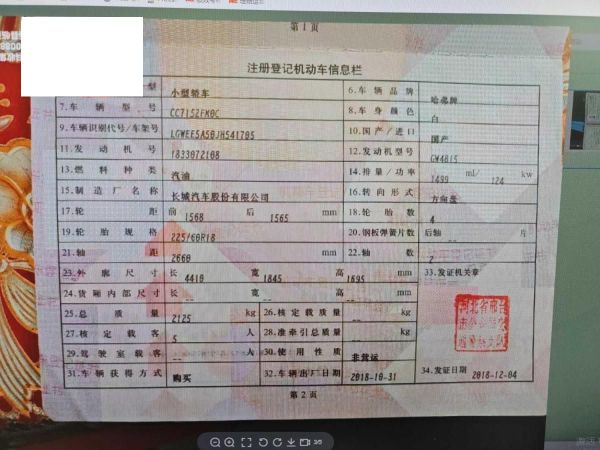 第1页
注册登记机动车信息栏
型 小型轿车 6.车辆品牌 哈弗牌
7.车辆型号 CC7152FM0C 8.车身颜色 白
9.车辆识别代号/车架号 LGWEE5A50JH541705 10.国产/进口 国产
11.发动机号 1833072108 12.发动机型号 GW4B15
13.燃料种类 汽油 14.排量/功率 1499 ml/ 124 kw
15.制造厂名称 长城汽车股份有限公司 16.转向形式 方向盘
17.轮距 前 1568 后 1565 mm 18.轮胎数 4
19.轮胎规格 225/60R18 20.钢板弹簧片数 后轴 -- 片
21.轴距 2660 mm 22.轴数 2
23.外廓尺寸 长 4410 宽 1845 高 1695 mm 33.发证机关章
24.货厢内部尺寸 长 -- 宽 -- 高 -- mm
25.总质量 2125 kg 26.核定载质量 -- kg
27.核定载客 5 人 28.准牵引总质量 -- kg
29.驾驶室载客 -- 人 30.使用性质 非营运
31.车辆获得方式 购买 32.车辆出厂日期 2018-10-31 34.发证日期 2018-12-04
第2页